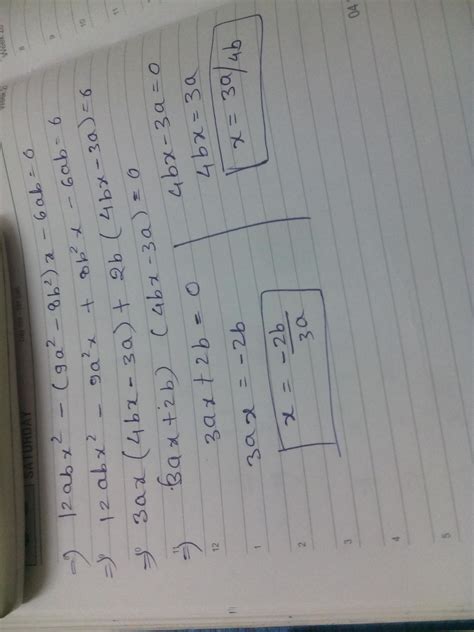 SATURDAY
⇒ 12abx² - (9a² - 8b²)x - 6ab = 0
⇒ 12abx² - 9a²x + 8b²x - 6ab = 6
⇒ 3ax(4bx - 3a) + 2b(4bx - 3a) = 6
⇒ (3ax + 2b) (4bx - 3a) = 0
3ax + 2b = 0 4bx - 3a = 0
3ax = -2b 4bx = 3a
x = -2b/3a x = 3a/4b
8
9
10
11
12
1
2
3
4
5
8
9
10
11
04